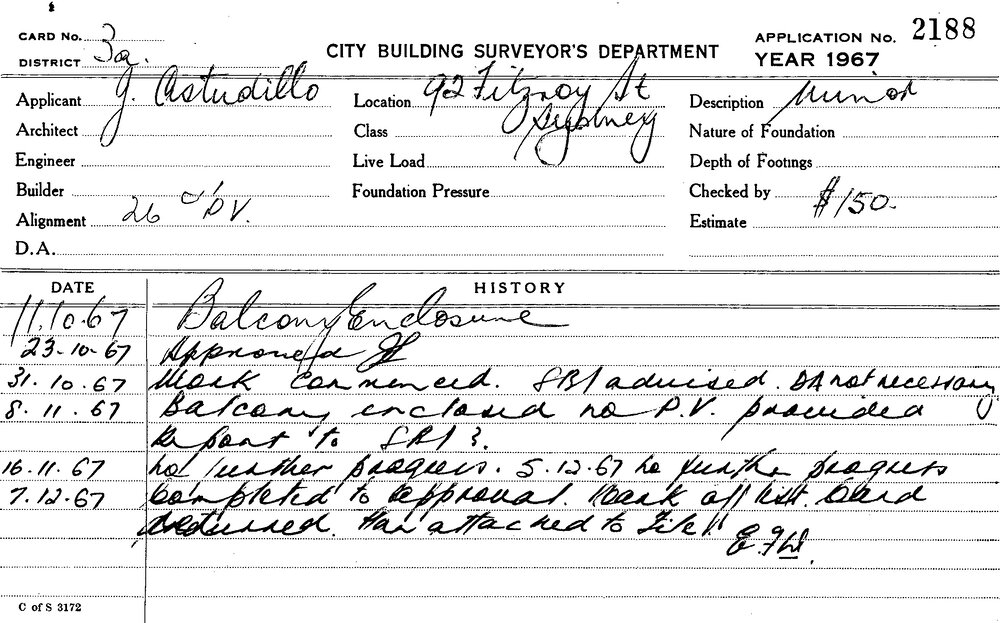 CARD No. 3a.
DISTRICT
CITY BUILDING SURVEYOR'S DEPARTMENT
APPLICATION No. 2188
YEAR 1967
Applicant J. Astudillo
Architect
Engineer
Builder
Alignment 26
D.A.
Location 92 Fitzroy St
Sydney
Class
Live Load
Foundation Pressure
Description Minor
Nature of Foundation
Depth of Footings
Checked by
Estimate $150.
DATE HISTORY
11.10.67 Balcony Enclosure
23.10.67 Approved
31.10.67 Work commenced. SBI advised. DA not necessary
8.11.67 Balcony enclosed no P.V. provided
Report to SBI
16.11.67 No further progress. 5.12.67 No further progress
7.12.67 Completed to approval. Mark off list. Card
returned. attached to File
C of S 3172